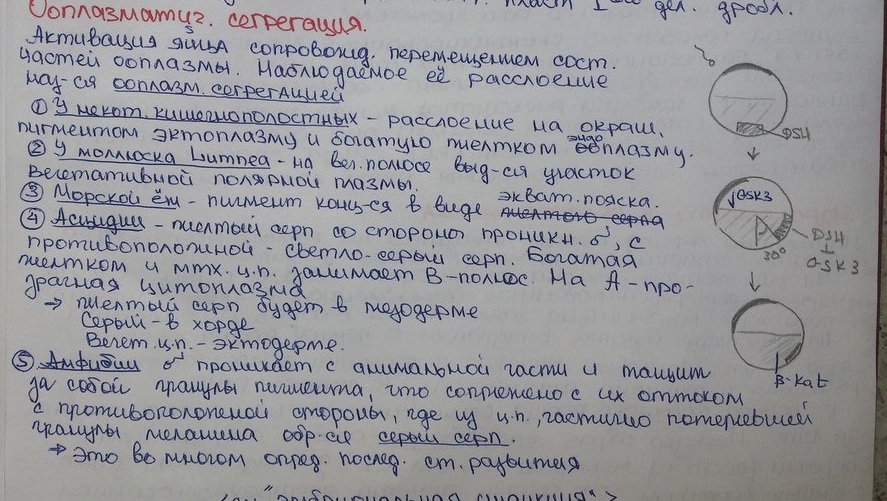 пласт I ого дел. дробл.
Ооплазматич. сегрегация.
Активация яйца сопровожд. перемещением сост.
частей ооплазмы. Наблюдаемое её расслоение
наз-ся ооплазм. сегрегацией
① У некот. кишечнополостных - расслоение на окраш.
пигментом эктоплазму и богатую желтком эндоплазму.
② У моллюска Limnea - на вег. полюсе выд-ся участок
вегетативной полярной плазмы.
③ Морской ёж - пигмент конц-ся в виде экват. пояска.
желтого серпа
④ Асцидии - желтый серп со стороны проникн. ♂, с
противоположной - светло-серый серп. Богатая
желтком и мтх. ц.п. занимает В-полюс. На А - про-
зрачная цитоплазма
→ желтый серп будет в мезодерме
Серый - в хорде
Вегет. ц.п. - эктодерме.
⑤ Амфибии ♂ проникает с анимальной части и тащит
за собой гранулы пигмента, что сопряжено с их оттоком
с противоположной стороны, где из ц.п., частично потерявшей
гранулы меланина обр-ся серый серп.
→ Это во многом опред. послед. ст. развития
"эмбриональная индукция" >
DSH
GSK3
DSH
⊥
GSK3
30°
β-kat